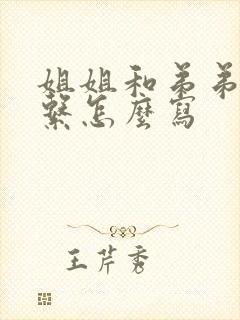 姐姐和弟弟
繫怎麼寫
王芹秀